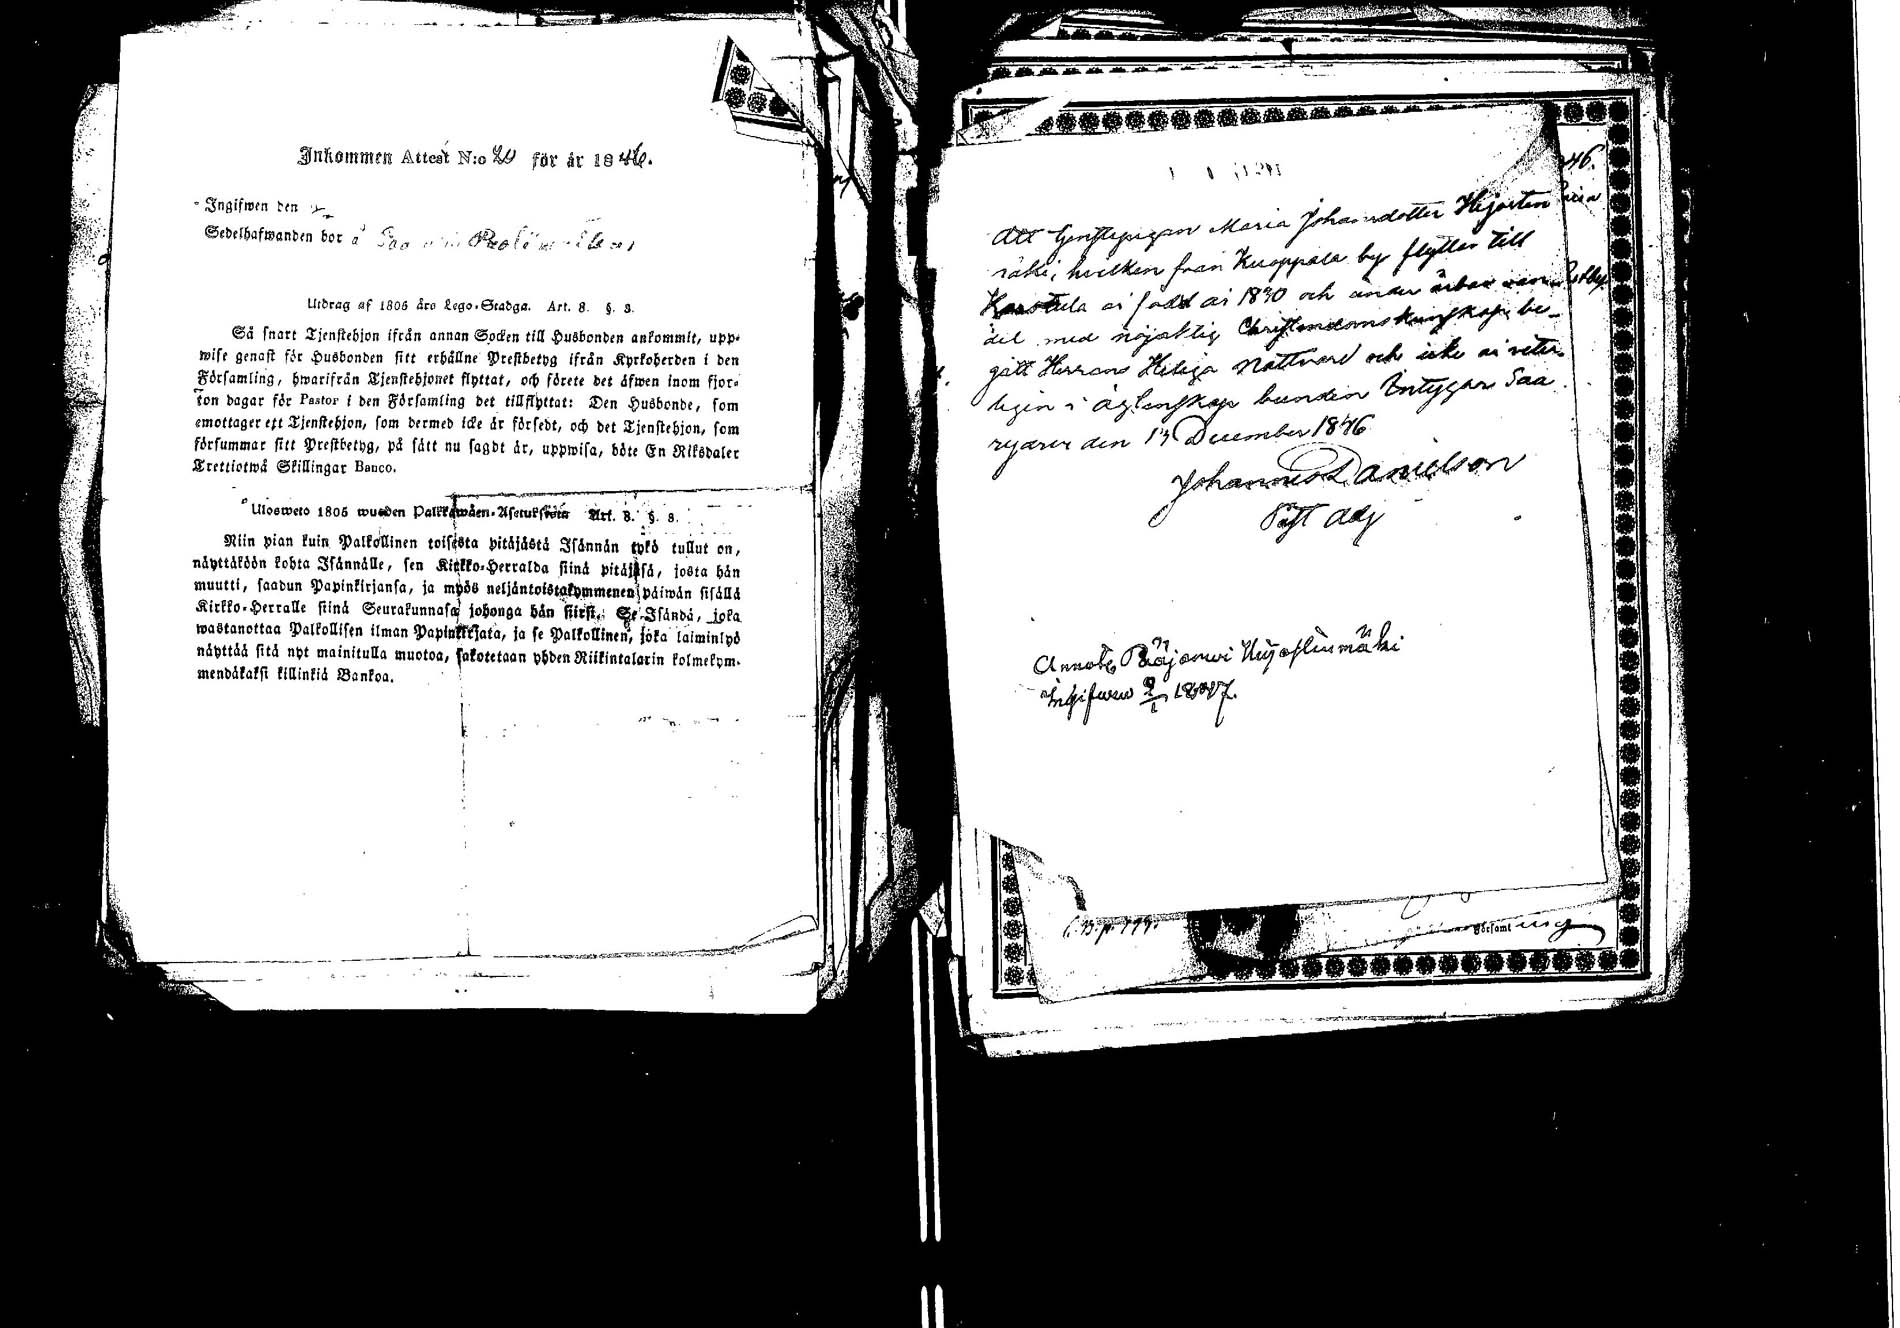 Inkommen Attest N:o 20 för år 1846.
Ingifwen den
Sedelhafwanden bor å
Utdrag af 1805 års Lego-Stadga. Art. 8. §. 3.
Så snart Tjenstehjon ifrån annan Socken till Husbonden ankommit, upp-
wise genast för Husbonden sitt erhållne Prestbetyg ifrån Kyrkoherden i den
Församling, hwarifrån Tjenstehjonet flyttat, och förete det äfwen inom fjor-
ton dagar för Pastor i den Församling det tillflyttat: Den Husbonde, som
emottager ett Tjenstehjon, som dermed icke är försedt, och det Tjenstehjon, som
försummar sitt Prestbetyg, på sätt nu sagdt är, uppwisa, böte En Riksdaler
Trettiotwå Skillingar Banco.
Ulosweto 1805 wuoden Palkkawäen-Asetuksesta Art. 8. §. 3.
Niin pian kuin Palkollinen toisesta pitäjästä Isännän tykö tullut on,
näyttäköön kohta Isännälle, sen Kirkko-Herralda siinä pitäjäsä, josta hän
muutti, saadun Papinkirjansa, ja myös neljäntoistakymmenen päiwän sisällä
Kirkko-Herralle siinä Seurakunnasa johonga hän siirsi. Se Isändä, joka
wastanottaa Palkollisen ilman Papinkirjata, ja se Palkollinen, joka laiminlyö
näyttää sitä nyt mainitulla muotoa, sakotetaan yhden Riikintalarin kolmekym-
mendäkaksi killinkiä Bankoa.
46.
Att Tjenstepigan Maria Johansdotter Hejosten
mäki, hvilken från Kuoppala by flyttar till
Karstula är född år 1820 och under ärbar van-
del med nöjaktig Christendomskunskap be-
gått Herrans Heliga Nattvard och icke är veter-
ligen i ägtenskap bunden Intygar Saa
rijärvi den 13 December 1846
Johannes Danielson
Past Adj
Ingifwen 9/1 1847.
C. B. p. 779.
Församl ing